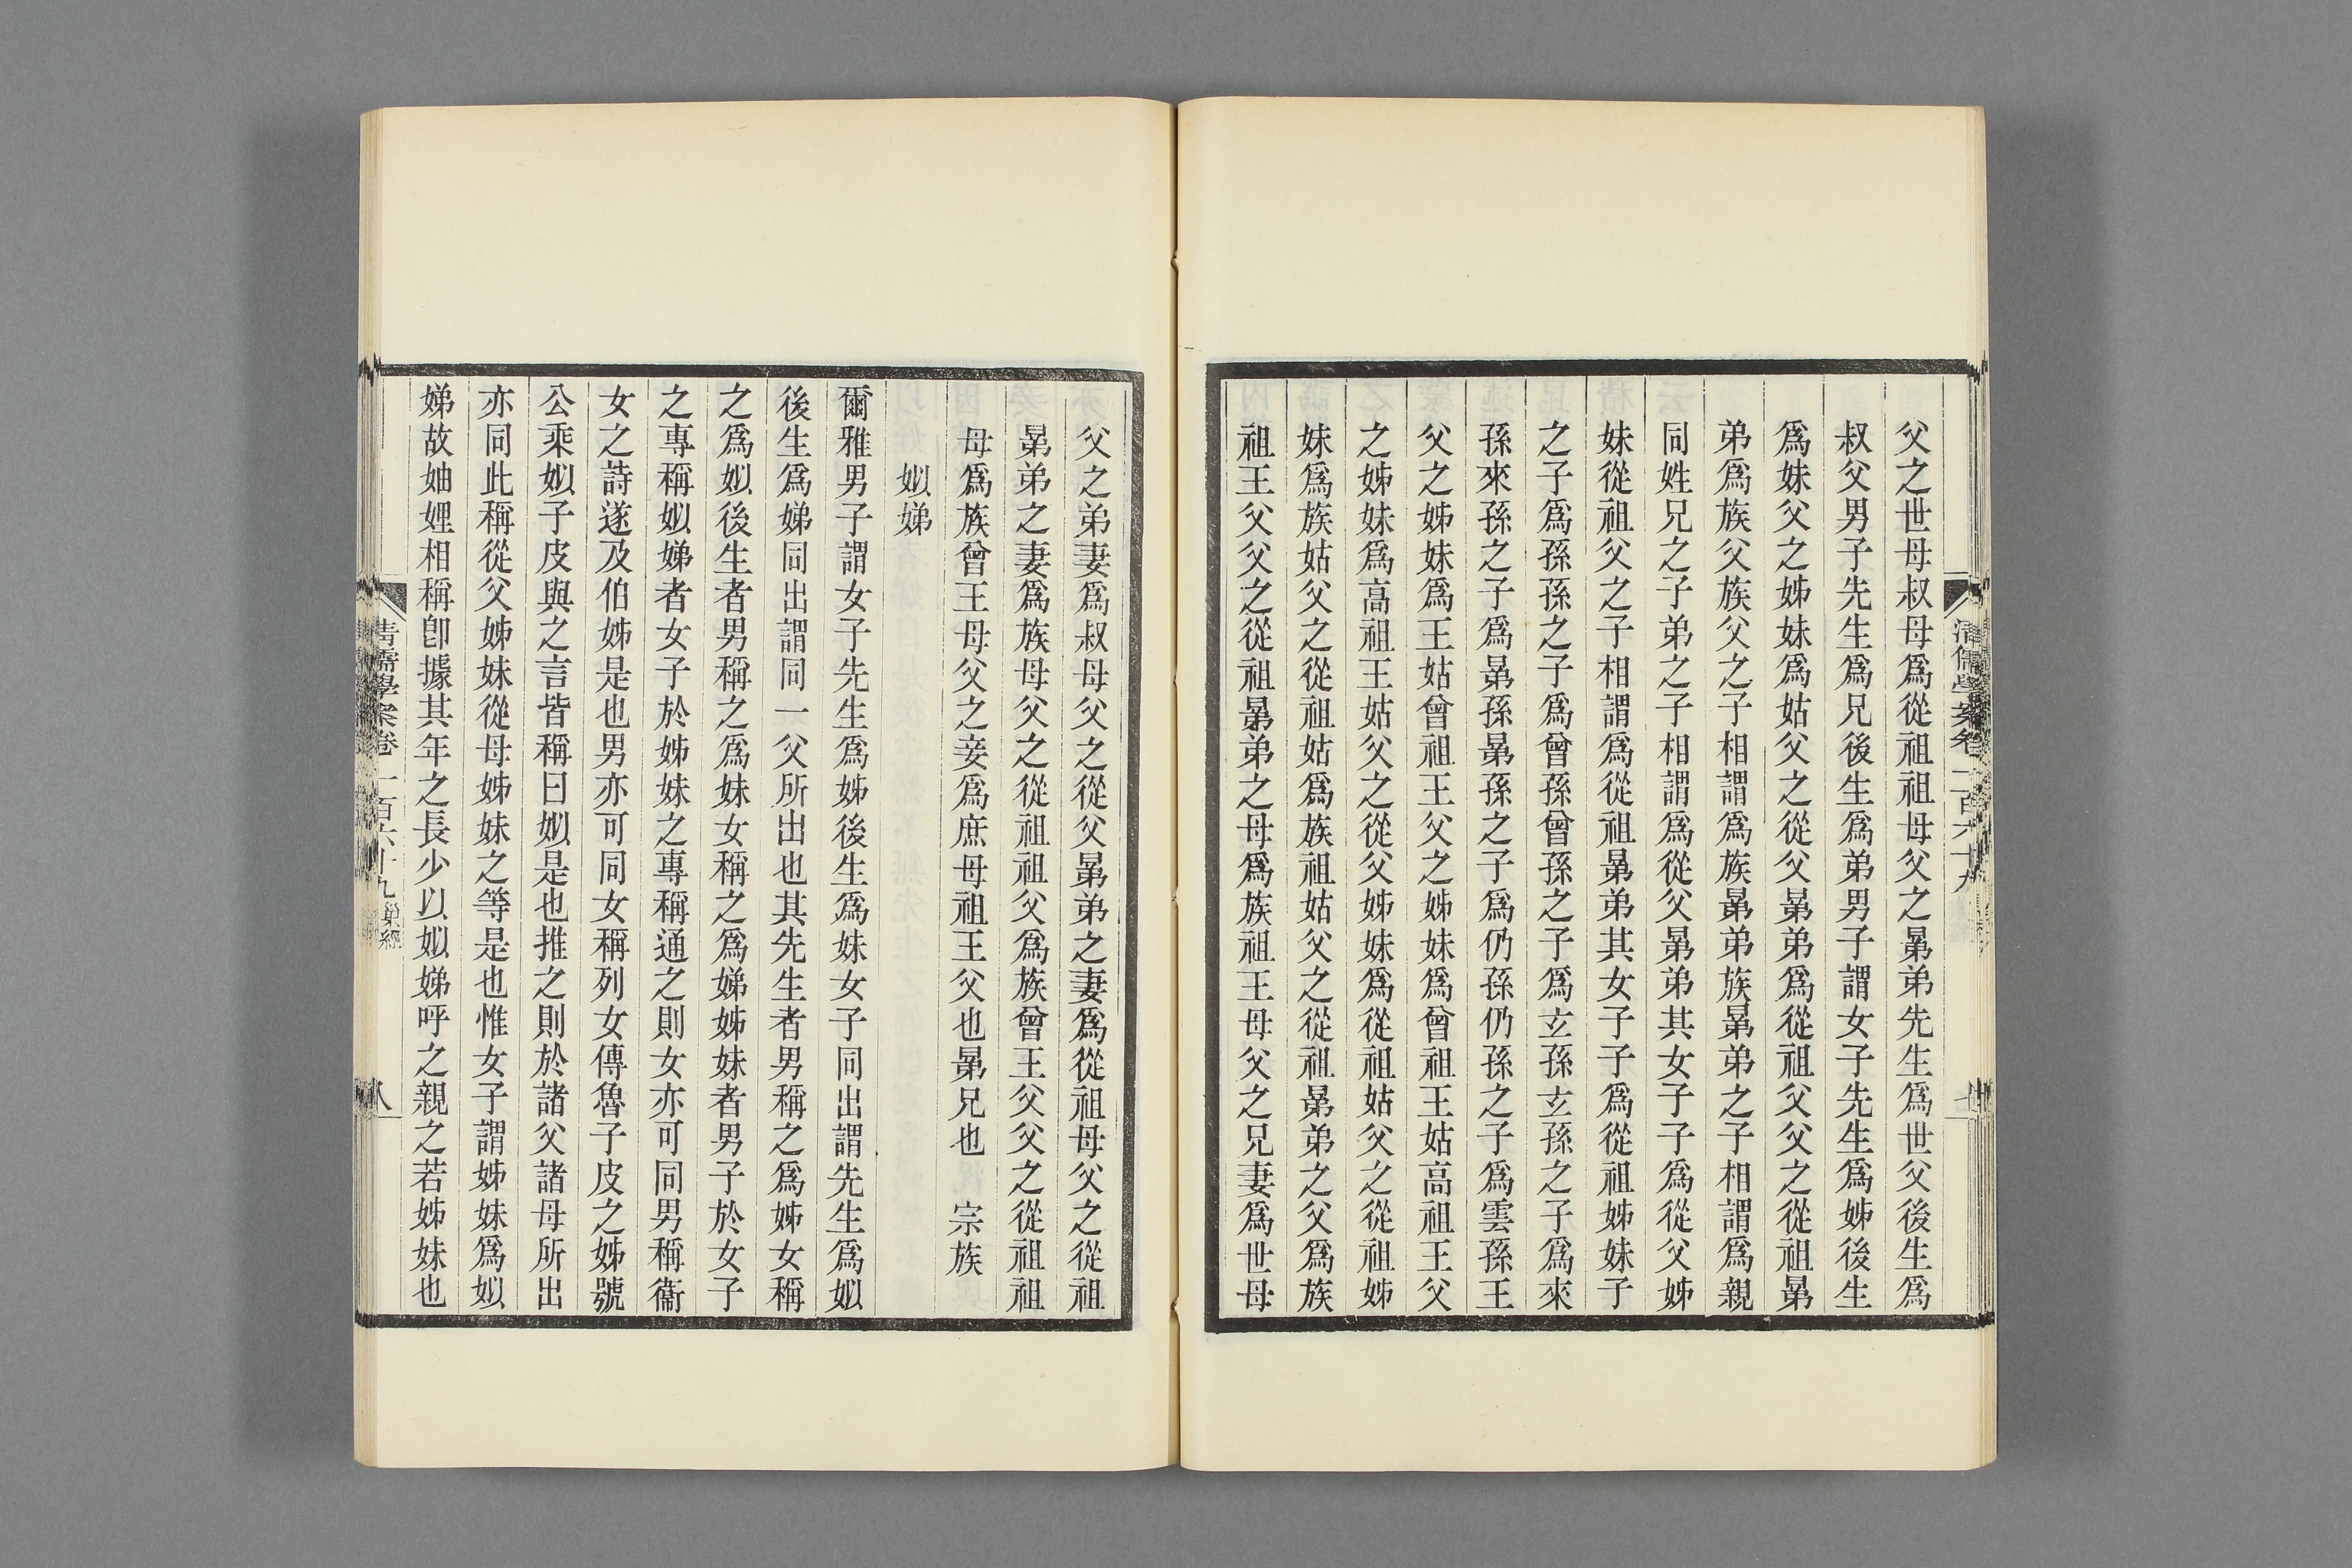 清儒學案卷一百六十九
七
父之世母叔母爲從祖祖母父之晜弟先生爲世父後生爲
叔父男子先生爲兄後生爲弟男子謂女子先生爲姊後生
爲妹父之姊妹爲姑父之從父晜弟爲從祖父父之從祖晜
弟爲族父族父之子相謂爲族晜弟族晜弟之子相謂爲親
同姓兄之子弟之子相謂爲從父晜弟其女子子爲從父姊
妹從祖父之子相謂爲從祖晜弟其女子子爲從祖姊妹子
之子爲孫孫之子爲曾孫曾孫之子爲玄孫玄孫之子爲來
孫來孫之子爲晜孫晜孫之子爲仍孫仍孫之子爲雲孫王
父之姊妹爲王姑曾祖王父之姊妹爲曾祖王姑高祖王父
之姊妹爲高祖王姑父之從父姊妹爲從祖姑父之從祖姊
妹爲族姑父之從祖姑爲族祖姑父之從祖晜弟之父爲族
祖王父父之從祖晜弟之母爲族祖王母父之兄妻爲世母
父之弟妻爲叔母父之從父晜弟之妻爲從祖母父之從祖
晜弟之妻爲族母父之從祖祖父爲族曾王父父之從祖祖
母爲族曾王母父之妾爲庶母祖王父也晜兄也　宗族
姒娣
爾雅男子謂女子先生爲姊後生爲妹女子同出謂先生爲姒
後生爲娣同出謂同一父所出也其先生者男稱之爲姊女稱
之爲姒後生者男稱之爲妹女稱之爲娣姊妹者男子於女子
之專稱姒娣者女子於姊妹之專稱通之則女亦可同男稱衞
女之詩遂及伯姊是也男亦可同女稱列女傳魯子皮之姊號
公乘姒子皮與之言皆稱曰姒是也推之則於諸父諸母所出
亦同此稱從父姊妹從母姊妹之等是也惟女子謂姊妹爲姒
娣故妯娌相稱卽據其年之長少以姒娣呼之親之若姊妹也
清儒學案卷一百六十九 巢經
八